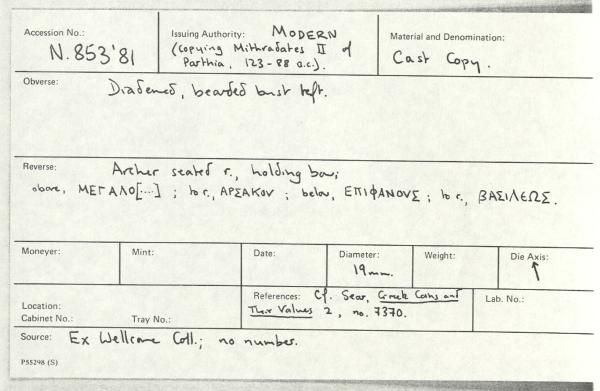 Accession No.:
N.853'81
Issuing Authority: MODERN
(Copying Mithradates II of
Parthia, 123-88 B.C.).
Material and Denomination:
Cast Copy.
Obverse: Diademed, bearded bust left.
Reverse: Archer seated r., holding bow;
above, ΜΕΓΑΛΟ[...] ; to r., ΑΡΣΑΚΟΥ ; below, ΕΠΙΦΑΝΟΥΣ ; to r., ΒΑΣΙΛΕΩΣ.
Moneyer:
Mint:
Date:
Diameter:
19mm.
Weight:
Die Axis:
↑
Location:
Cabinet No.:
Tray No.:
References: Cf. Sear, Greek Coins and
Their Values 2, no. 7370.
Lab. No.:
Source: Ex Wellcome Coll.; no number.
P55298 (S)